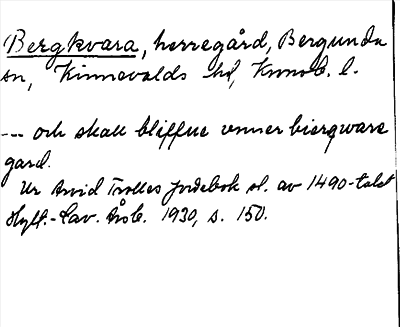 Bergkvara, herregård, Bergunda
sn, Kinnevalds hd, Kronob. l.
--- och skall bliffue vnner bierqwara
gard.
Ur Arvid Trolles jordebok sl. av 1490-talet
Hylt.-Cav. Årsb. 1930, s. 150.